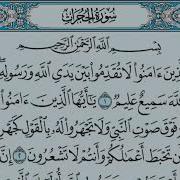 سُورَةُ الحُجُرَاتِ
بِسْمِ ٱللَّهِ ٱلرَّحْمَٰنِ ٱلرَّحِيمِ
ذِينَ ءَامَنُوا۟ لَا تُقَدِّمُوا۟ بَيْنَ يَدَىِ ٱللَّهِ وَرَسُولِهِۦ
ٱللَّهَ سَمِيعٌ عَلِيمٌ ١ يَٰٓأَيُّهَا ٱلَّذِينَ ءَامَنُوا۟
فَوْقَ صَوْتِ ٱلنَّبِىِّ وَلَا تَجْهَرُوا۟ لَهُۥ بِٱلْقَوْلِ كَجَهْرِ
أَن تَحْبَطَ أَعْمَٰلُكُمْ وَأَنتُمْ لَا تَشْعُرُونَ ٢